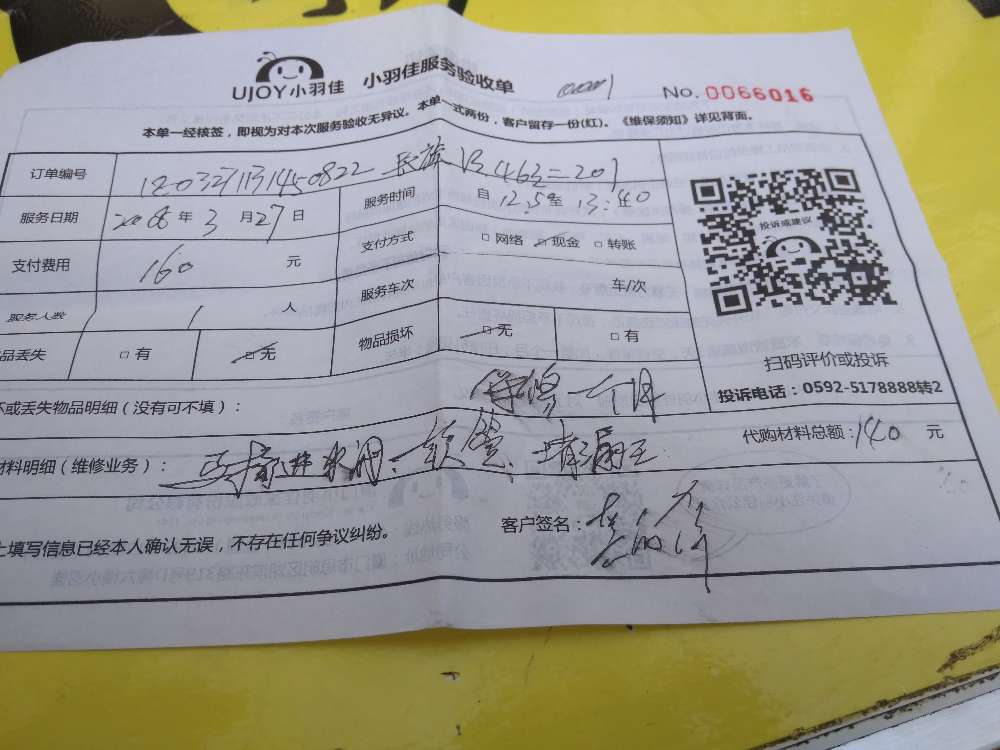 UJOY小羽佳 小羽佳服务验收单 No.0066016
本单一经核签，即视为对本次服务验收无异议。本单一式两份，客户留存一份(红)。《维保须知》详见背面。
订单编号
服务日期 年 3 月 27 日 服务时间 自 至 13:40
支付费用 160 元 支付方式 □网络 □现金 □转账
服务人数 1 人 服务车次 车/次
品丢失 □有 □无 物品损坏 □无 □有
投诉或建议
扫码评价或投诉
投诉电话：0592-5178888转2
坏或丢失物品明细（没有可不填）：
材料明细（维修业务）： 马桶进水阀、软管、堵漏王 代购材料总额：140 元
上填写信息已经本人确认无误，不存在任何争议纠纷。 客户签名：